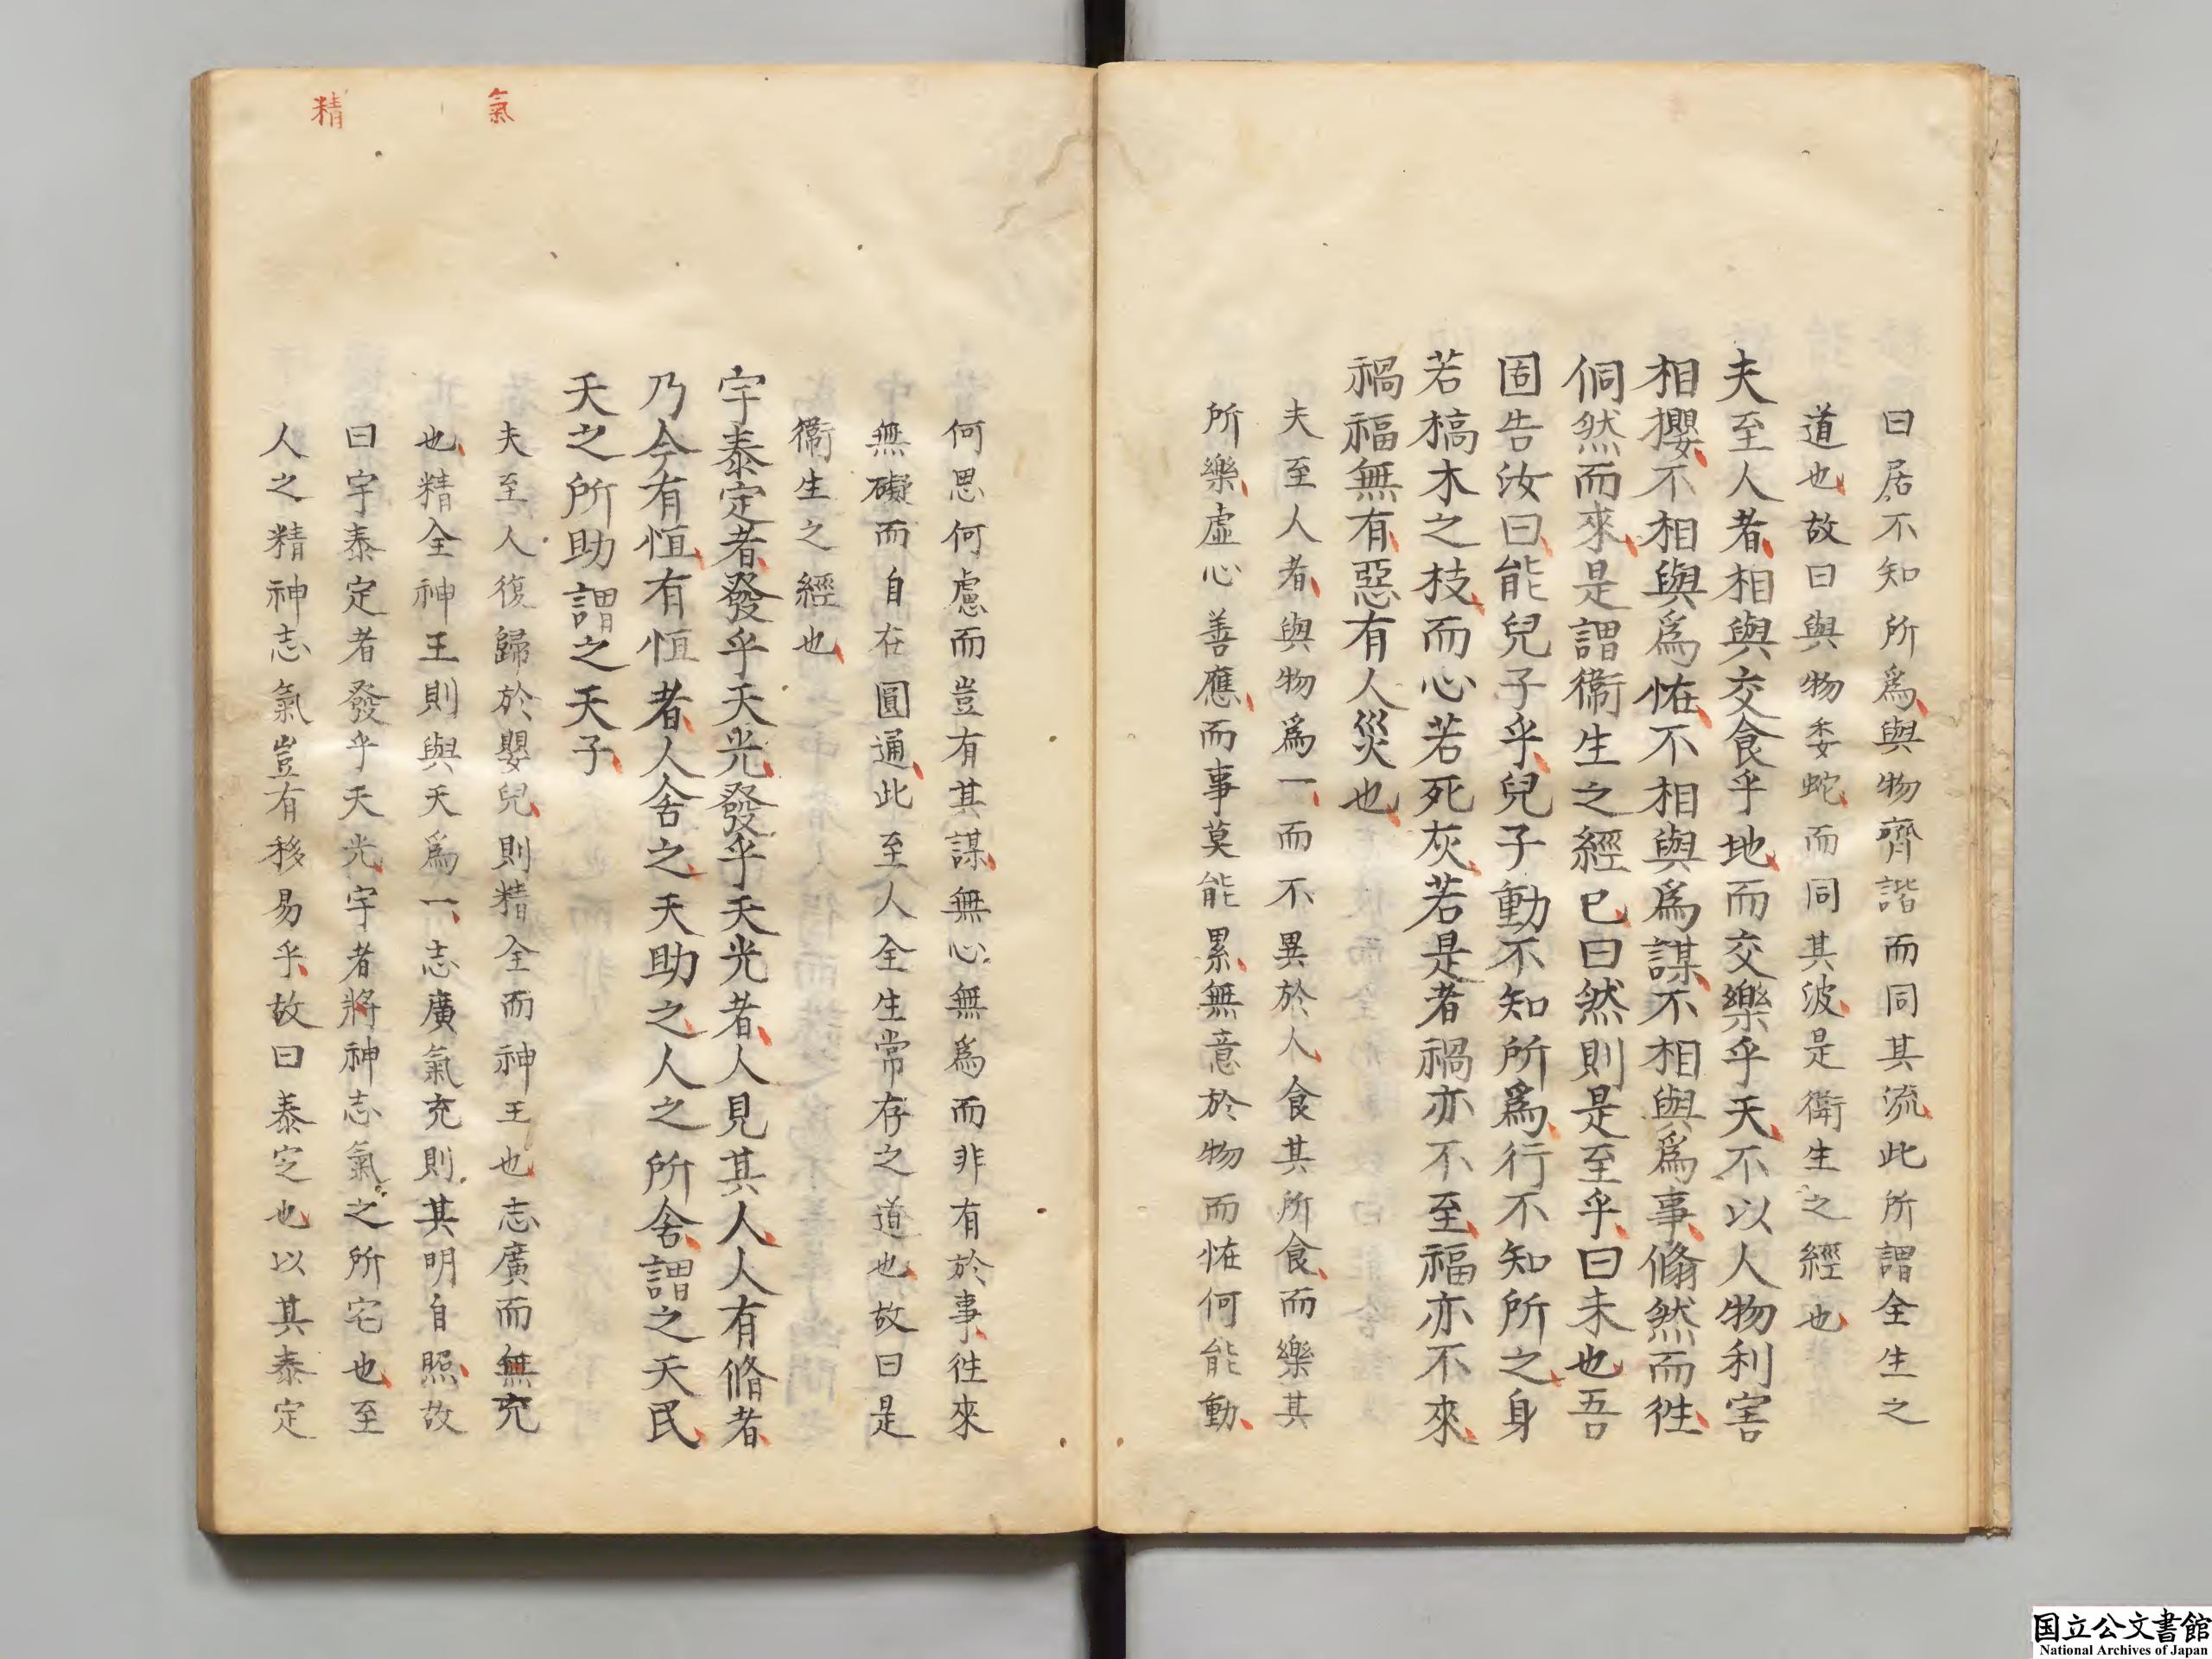 曰居不知所爲與物齊諧而同其流此所謂全生之
道也故曰與物委蛇而同其波是衛生之經也
夫至人者相與交食乎地而交樂乎天不以人物利害
相攖不相與爲恠不相與爲謀不相與爲事翛然而徃
侗然而來是謂衛生之經已曰然則是至乎曰未也吾
固告汝曰能兒子乎兒子動不知所爲行不知所之身
若槁木之枝而心若死灰若是者禍亦不至福亦不來
禍福無有惡有人災也
夫至人者與物爲一而不異於人食其所食而樂其
所樂虛心善應而事莫能累無意於物而恠何能動
何思何慮而豈有其謀無心無爲而非有於事徃來
無礙而自在圓通此至人全生常存之道也故曰是
衛生之經也
宇泰定者發乎天光發乎天光者人見其人人有脩者
乃今有恒有恒者人舍之天助之人之所舍謂之天民
天之所助謂之天子
氣
夫至人復歸於嬰兒則精全而神王也志廣而無充
也精全神王則與天爲一志廣氣充則其明自照故
精
曰宇泰定者發乎天光宇者將神志氣之所宅也至
人之精神志氣豈有移易乎故曰泰定也以其泰定
国立公文書館
National Archives of Japan